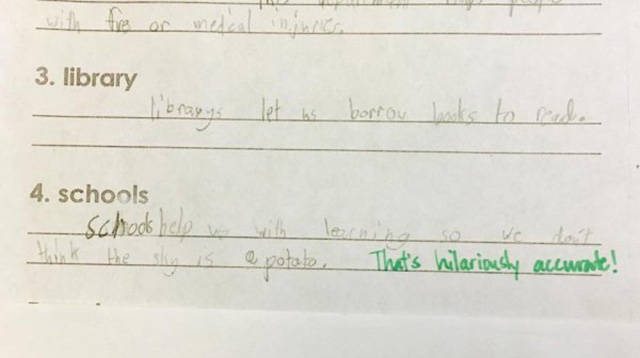 This department helps people
with fire or medical injuries.
3. library
librarys let us borrow books to read.
4. schools
Schools help us with learning so we don't
think the sky is a potato. That's hilariously accurate!